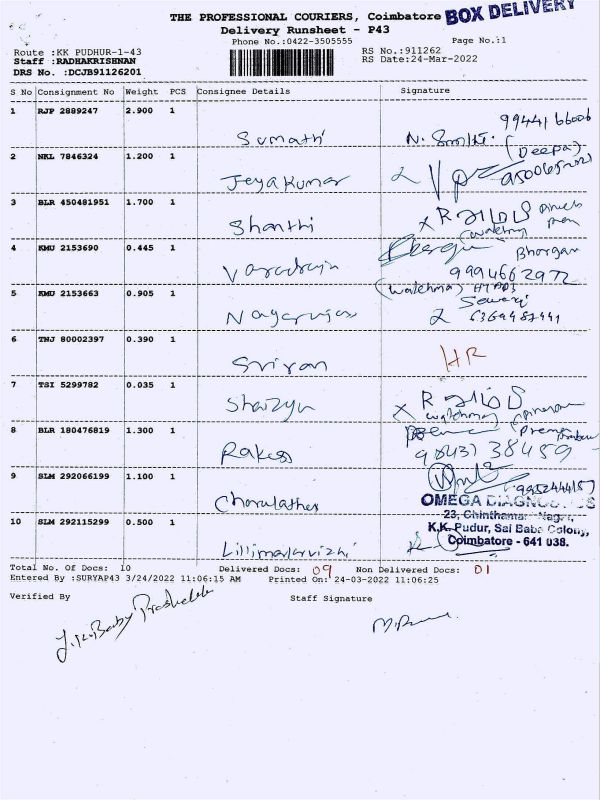 THE PROFESSIONAL COURIERS, Coimbatore
BOX DELIVERY
Delivery Runsheet - P43
Phone No.:0422-3505555
Page No.:1
Route :KK PUDHUR-1-43
RS No.:911262
Staff :RADHAKRISHNAN
RS Date:24-Mar-2022
DRS No. :DCJB91126201
S No Consignment No Weight PCS Consignee Details Signature
1 RJP 2889247 2.900 1 Sumathi 9944166006
(Deepa)
2 NKL 7846324 1.200 1 Jeyakumar
3 BLR 450481951 1.700 1 Shanthi
4 KMU 2153690 0.445 1 Varadrajn
9994662972
5 KMU 2153663 0.905 1 (watchma)
6 TNJ 80002397 0.390 1 Sriram HR
7 TSI 5299782 0.035 1
watchman
8 BLR 180476819 1.300 1 Rakess
9043738459
9 SLM 292066199 1.100 1 Charulatha
OMEGA DIAGNOSTICS
23, Chinthamani Nagar,
K.K. Pudur, Sai Baba Colony,
Coimbatore - 641 038.
10 SLM 292115299 0.500 1
Total No. Of Docs: 10 Delivered Docs: 09 Non Delivered Docs: 01
Entered By :SURYAP43 3/24/2022 11:06:15 AM Printed On: 24-03-2022 11:06:25
Verified By Staff Signature